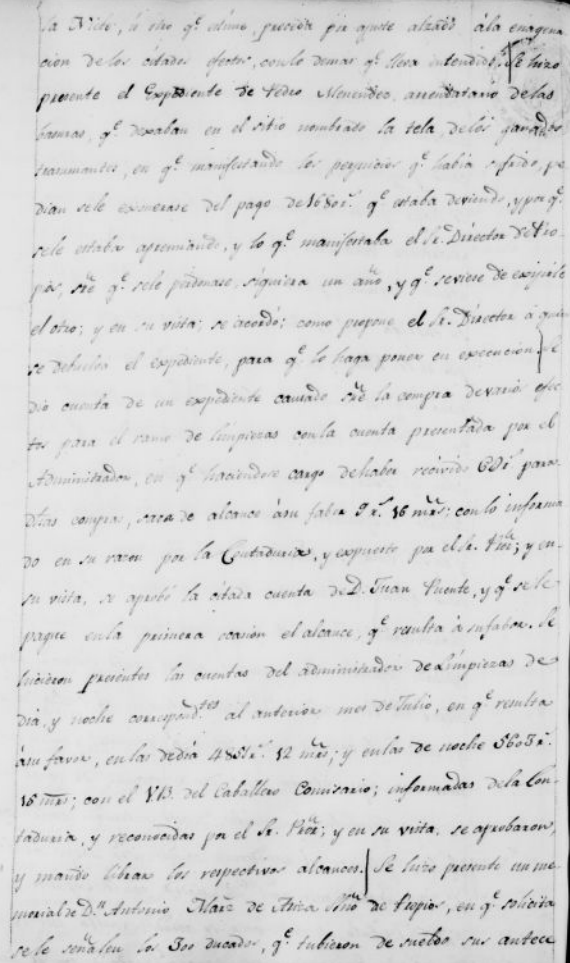 la Nieto, ù otro q.e estime, preceda por ajuste alzado à la enagena
cion de los citados efectos, con lo demas q.e lleva entendido. Se hizo
presente el Expediente de Pedro Menendez, arrendatario de las
basuras, q.e dexaban en el sitio nombrado la tela, de los ganados
trasumantes, en q.e manifestando los perjuicios q.e habia sufrido, pe
dian se le exonerase del pago de 1680 r.s q.e estaba deviendo, y por q.e
se le estaba apremiando, y lo q.e manifestaba el S.r Director de Pro-
pios, sre q.e se le perdonase, siquiera un año, y q.e se viese de exijirle
el otro; y en su vista; se acordó; como propone el S.r Director á quien
se debuelva el expediente, para q.e lo haga poner en execucion. Se
dió cuenta de un expediente causado sre la compra de varios efec
tos para el ramo de limpiezas con la cuenta presentada por el
Administrador, en q.e haciendose cargo de haber recivido r.s para
dhas compras, saca de alcance à su fabor 9 r.s 16 mrs; con lo informa
do en su razon por la Contaduria, y expuesto por el Sr. Pror; y en
su vista, se aprobó la citada cuenta de D. Juan Puente, y q.e se le
pague en la primera ocasion el alcance, q.e resulta à su fabor. Se
hicieron presentes las cuentas del administrador de Limpiezas de
dia, y noche correspond.tes al anterior mes de Julio, en q.e resulta
à su favor, en las de dia 4851 r.s 12 mrs; y en las de noche 5603 r.s
16 mrs; con el V.B. del Caballero Comisario; informadas de la Con
taduria, y reconocidas por el Sr. Pror; y en su vista, se aprobaron,
y mandó librar los respectivos alcances. Se hizo presente un me
morial de D.n Antonio Mārz de Ariza de Propios, en q.e solicita
se le señalen los 300 ducados, q.e tubieron de sueldo sus antece